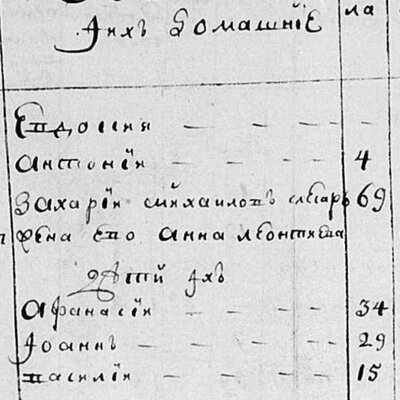 ла
Ихъ домашнїе
Евдокия — — — —
антонїи — — — 4
Захарїи михаиловъ слесаръ 69
жена ево анна леонтиева
дѣти ихъ
афанасїи — — — 34
Иоаннъ — — — 29
василїи — — — 15